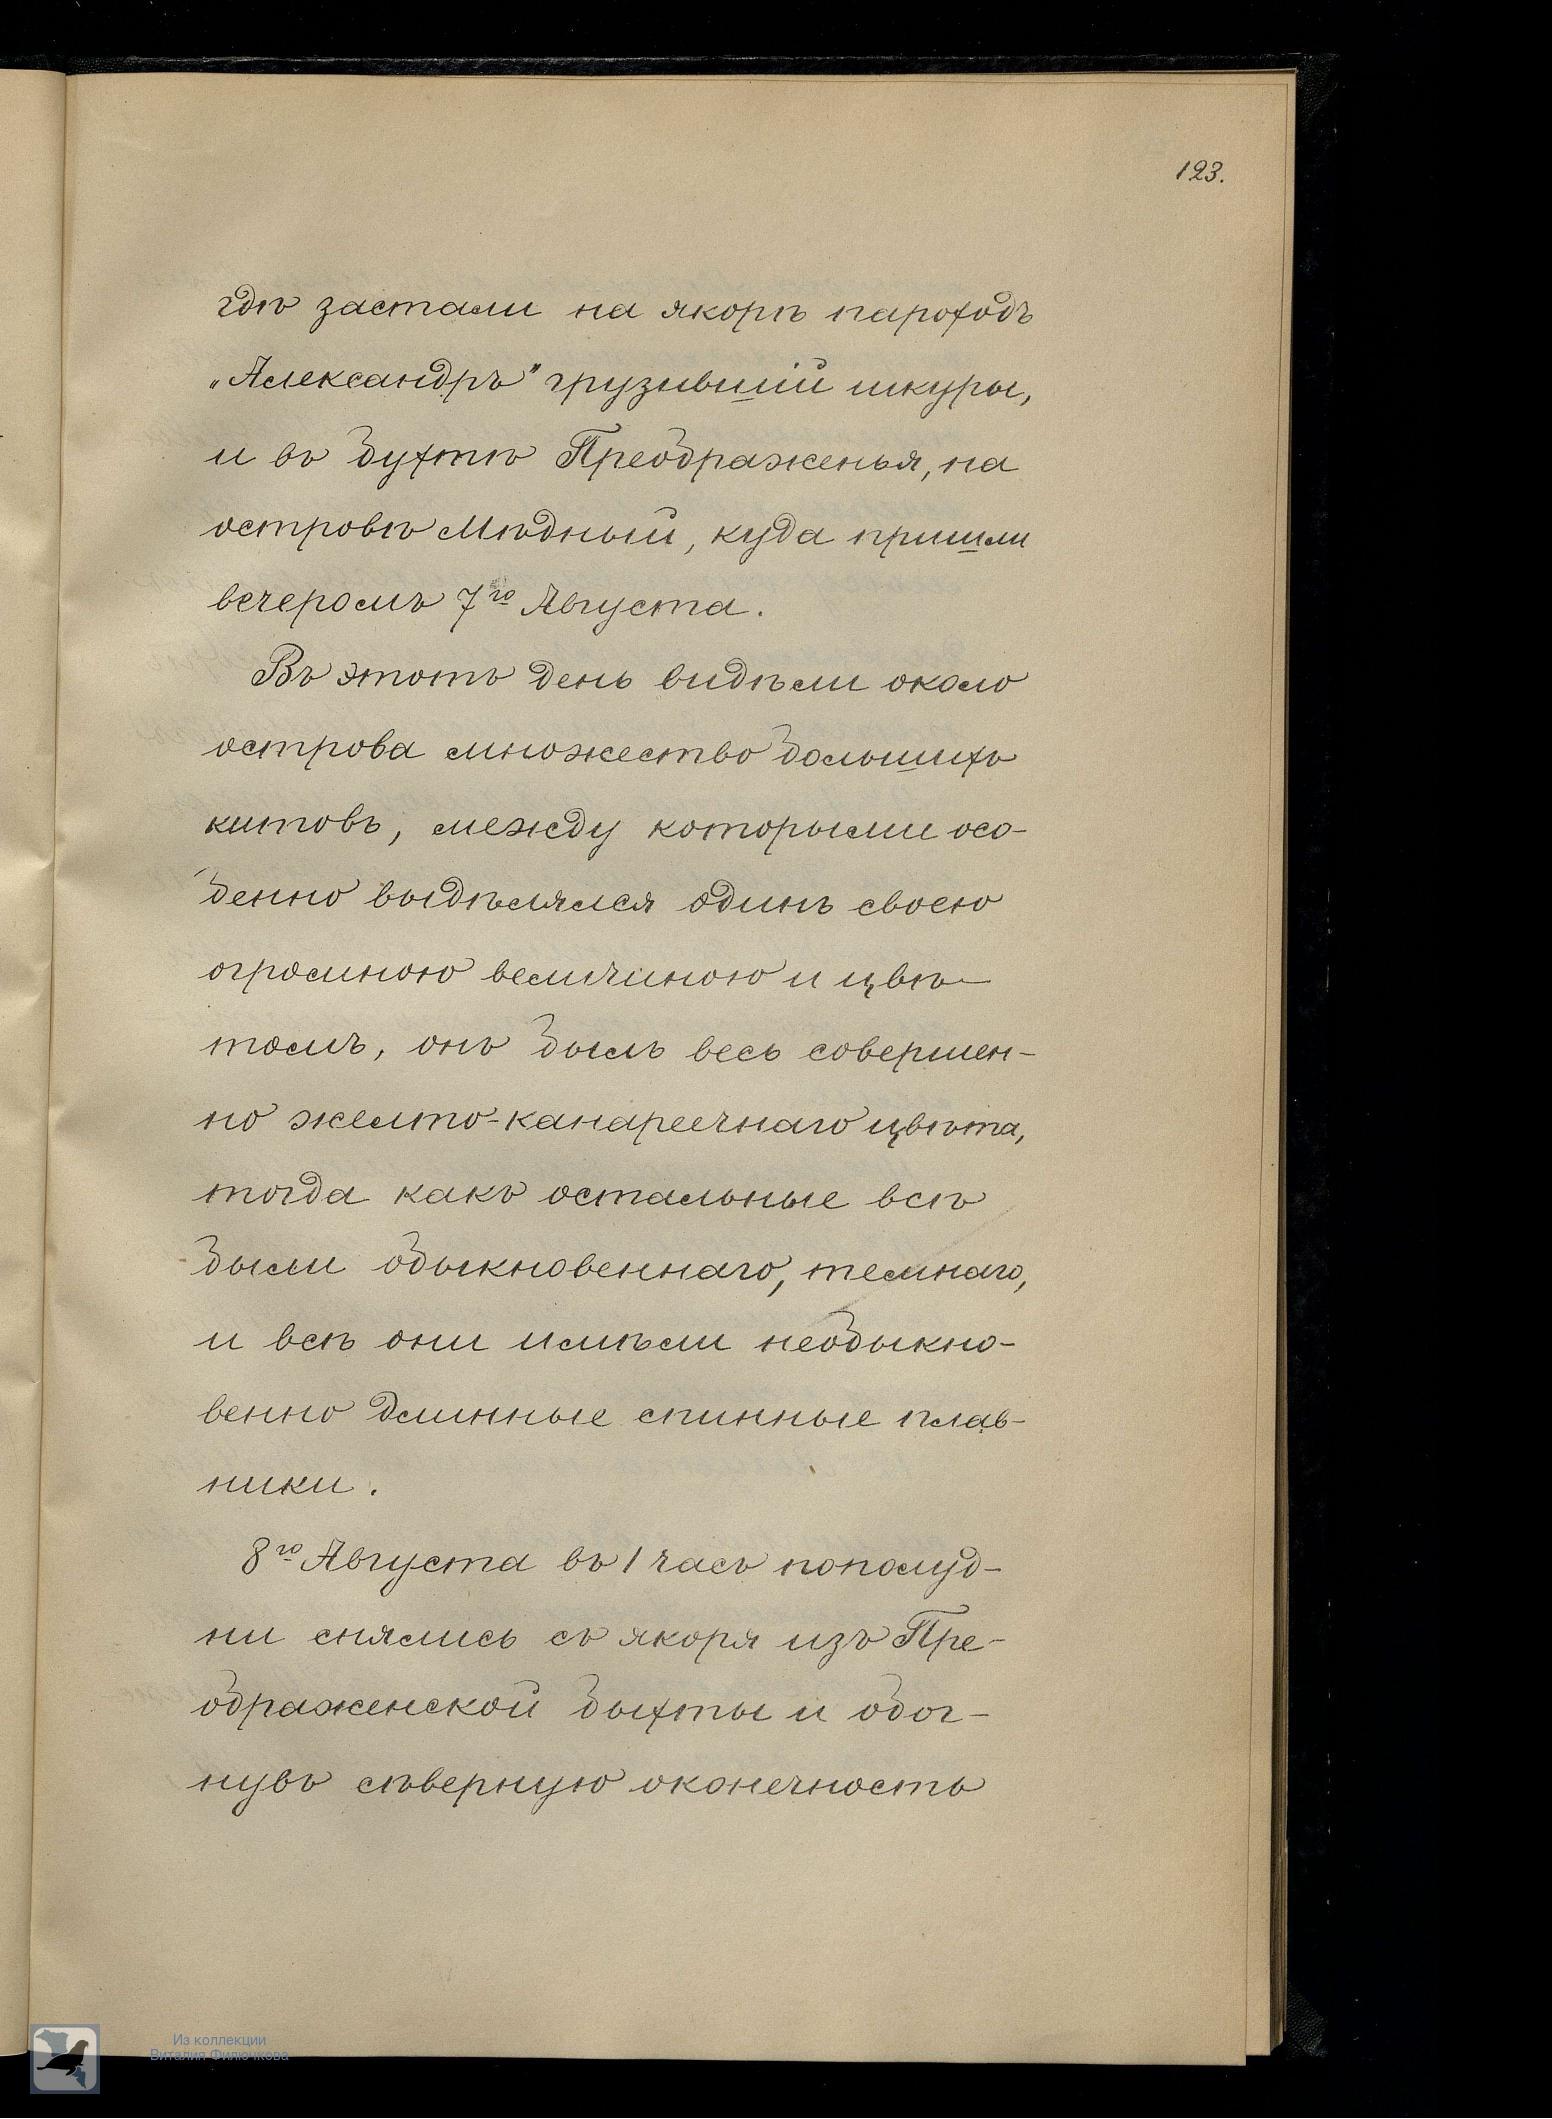 123.
гдѣ застали на якорѣ пароходъ
„Александръ" грузившій шкуры,
и въ бухтѣ Преображенья, на
островѣ Мѣдный, куда пришли
вечеромъ 7го Августа.
Въ этотъ день видѣли около
острова множество большихъ
китовъ, между которыми осо-
бенно выдѣлялся одинъ своею
огромною величиною и цвѣ-
томъ, онъ былъ весь совершен-
но желто-канареечнаго цвѣта,
тогда какъ остальные всѣ
были обыкновеннаго, темнаго,
и всѣ они имѣли необыкно-
венно длинные спинные плав-
ники.
8го Августа въ 1 часъ пополуд-
ни снялись съ якоря изъ Пре-
ображенской быхты и обог-
нувъ сѣверную оконечность
Из коллекции
Виталия Филючкова